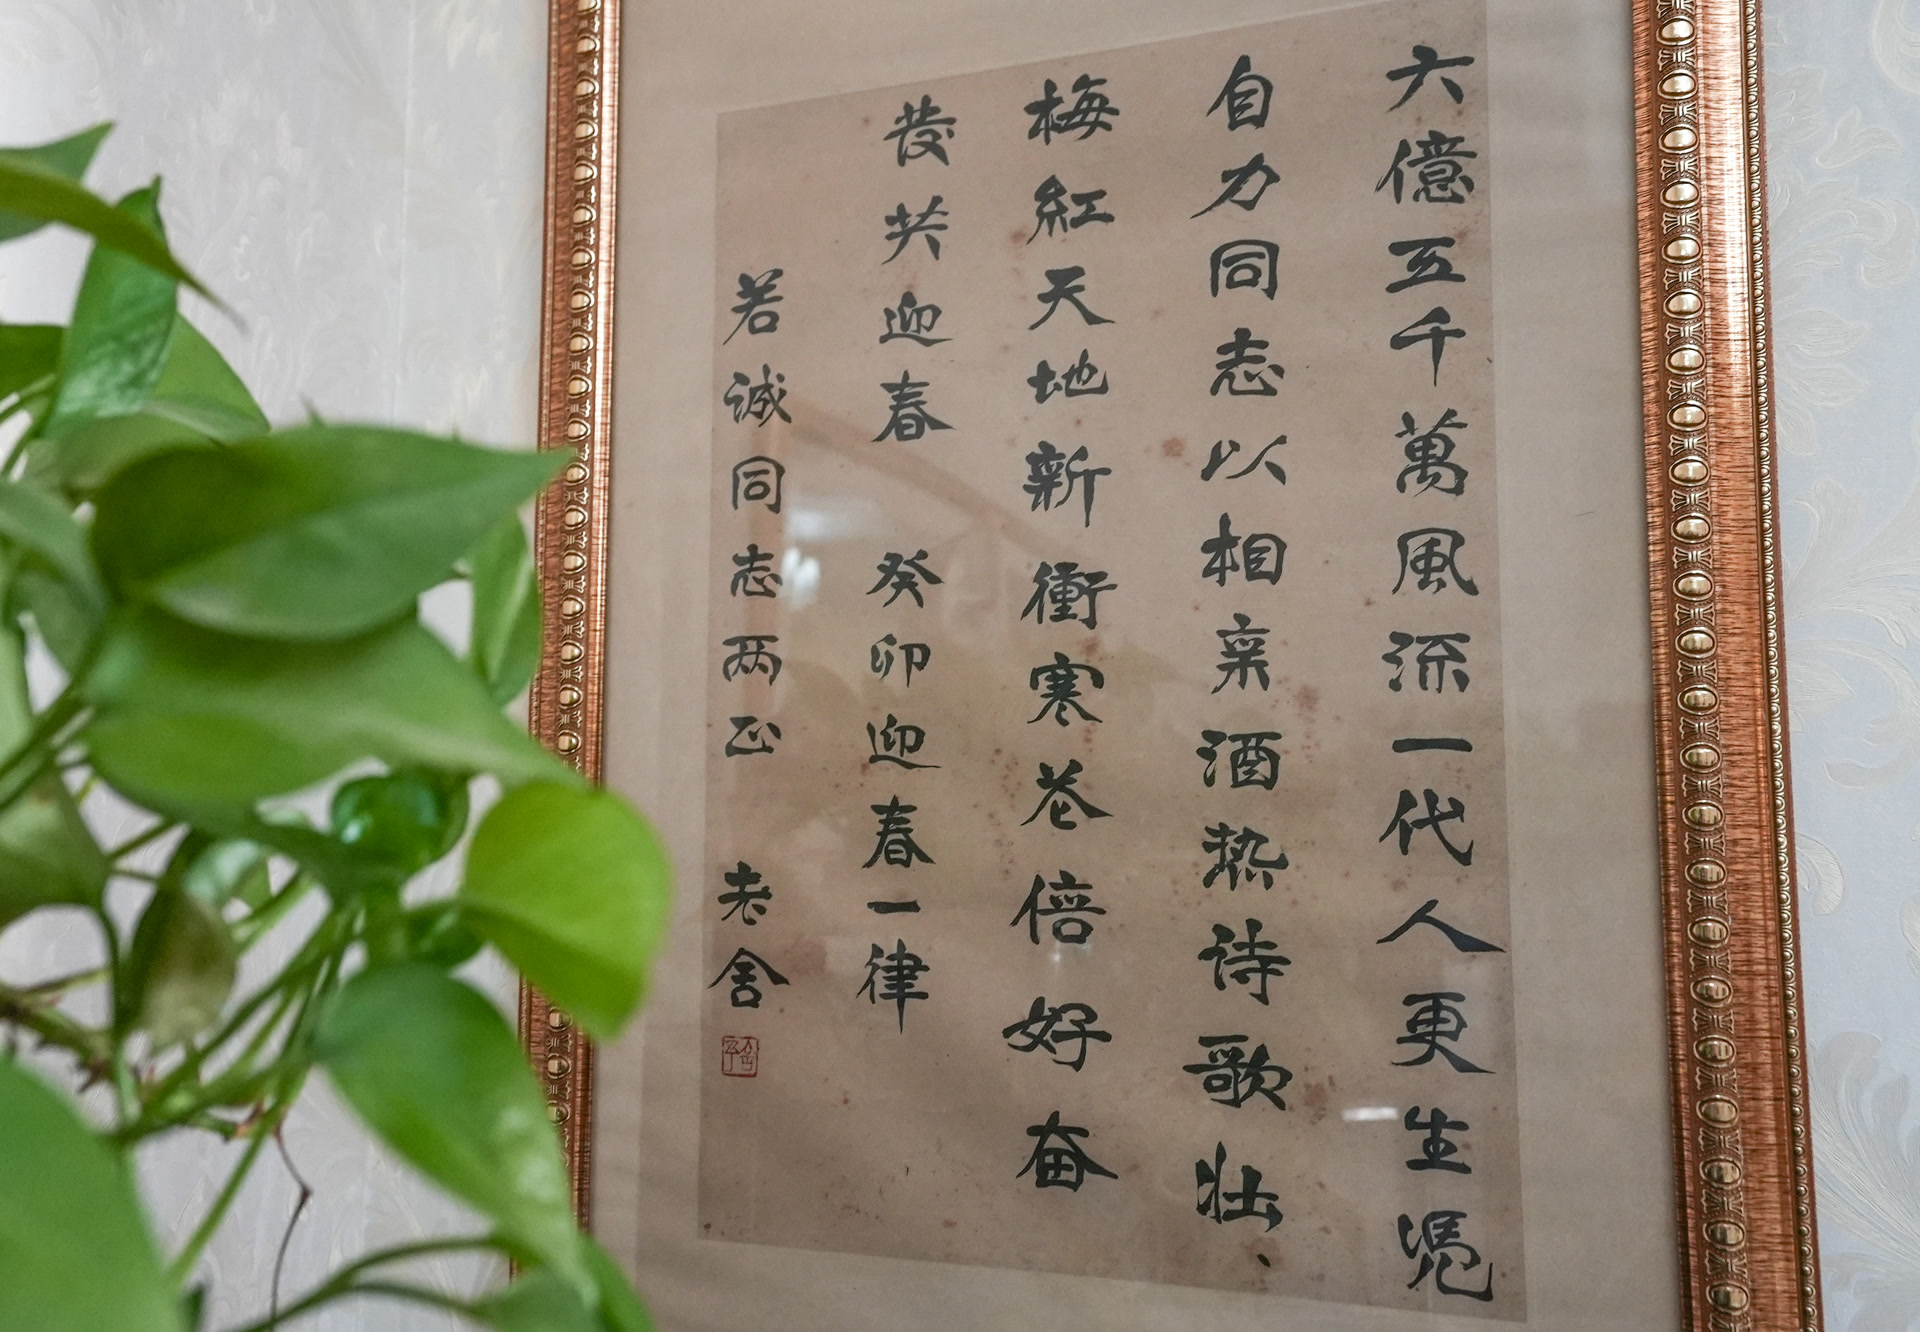 六億五千萬風流一代人更生凭
自力同志以相亲酒热诗歌壮、
梅紅天地新衝寒花倍好奋
發共迎春 癸卯迎春一律
若诚同志两正 老舍
舍予